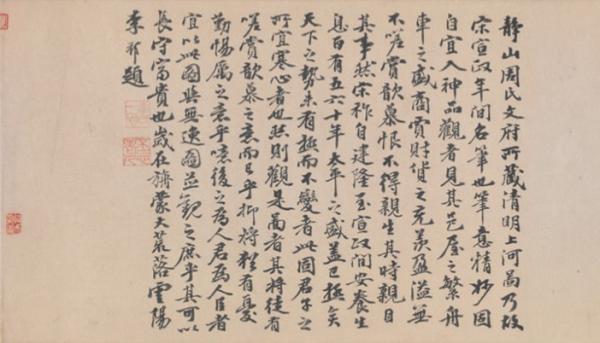 靜山周氏文府所藏清明上河啚乃故
宋宣政年間名筆也筆意精妙固
自宜入神品觀者見其邑屋之繁舟
車之盛商賈財貨之充羨盈溢無
不嗟賞歆慕恨不得親生其時親目
其事然宋祚自建隆至宣政間安養生
息百有五六十年太平之盛蓋已極矣
天下之勢未有極而不變者此固君子之
所宜寒心者也然則觀是啚者其將徒有
嗟賞歆慕之意而已乎抑將猶有憂
勤惕厲之意乎噫後之為人君為人臣者
宜以此圖與無逸圖並觀之庶乎其可以
長守富貴也歲在旃蒙大荒落雲陽
李祁題